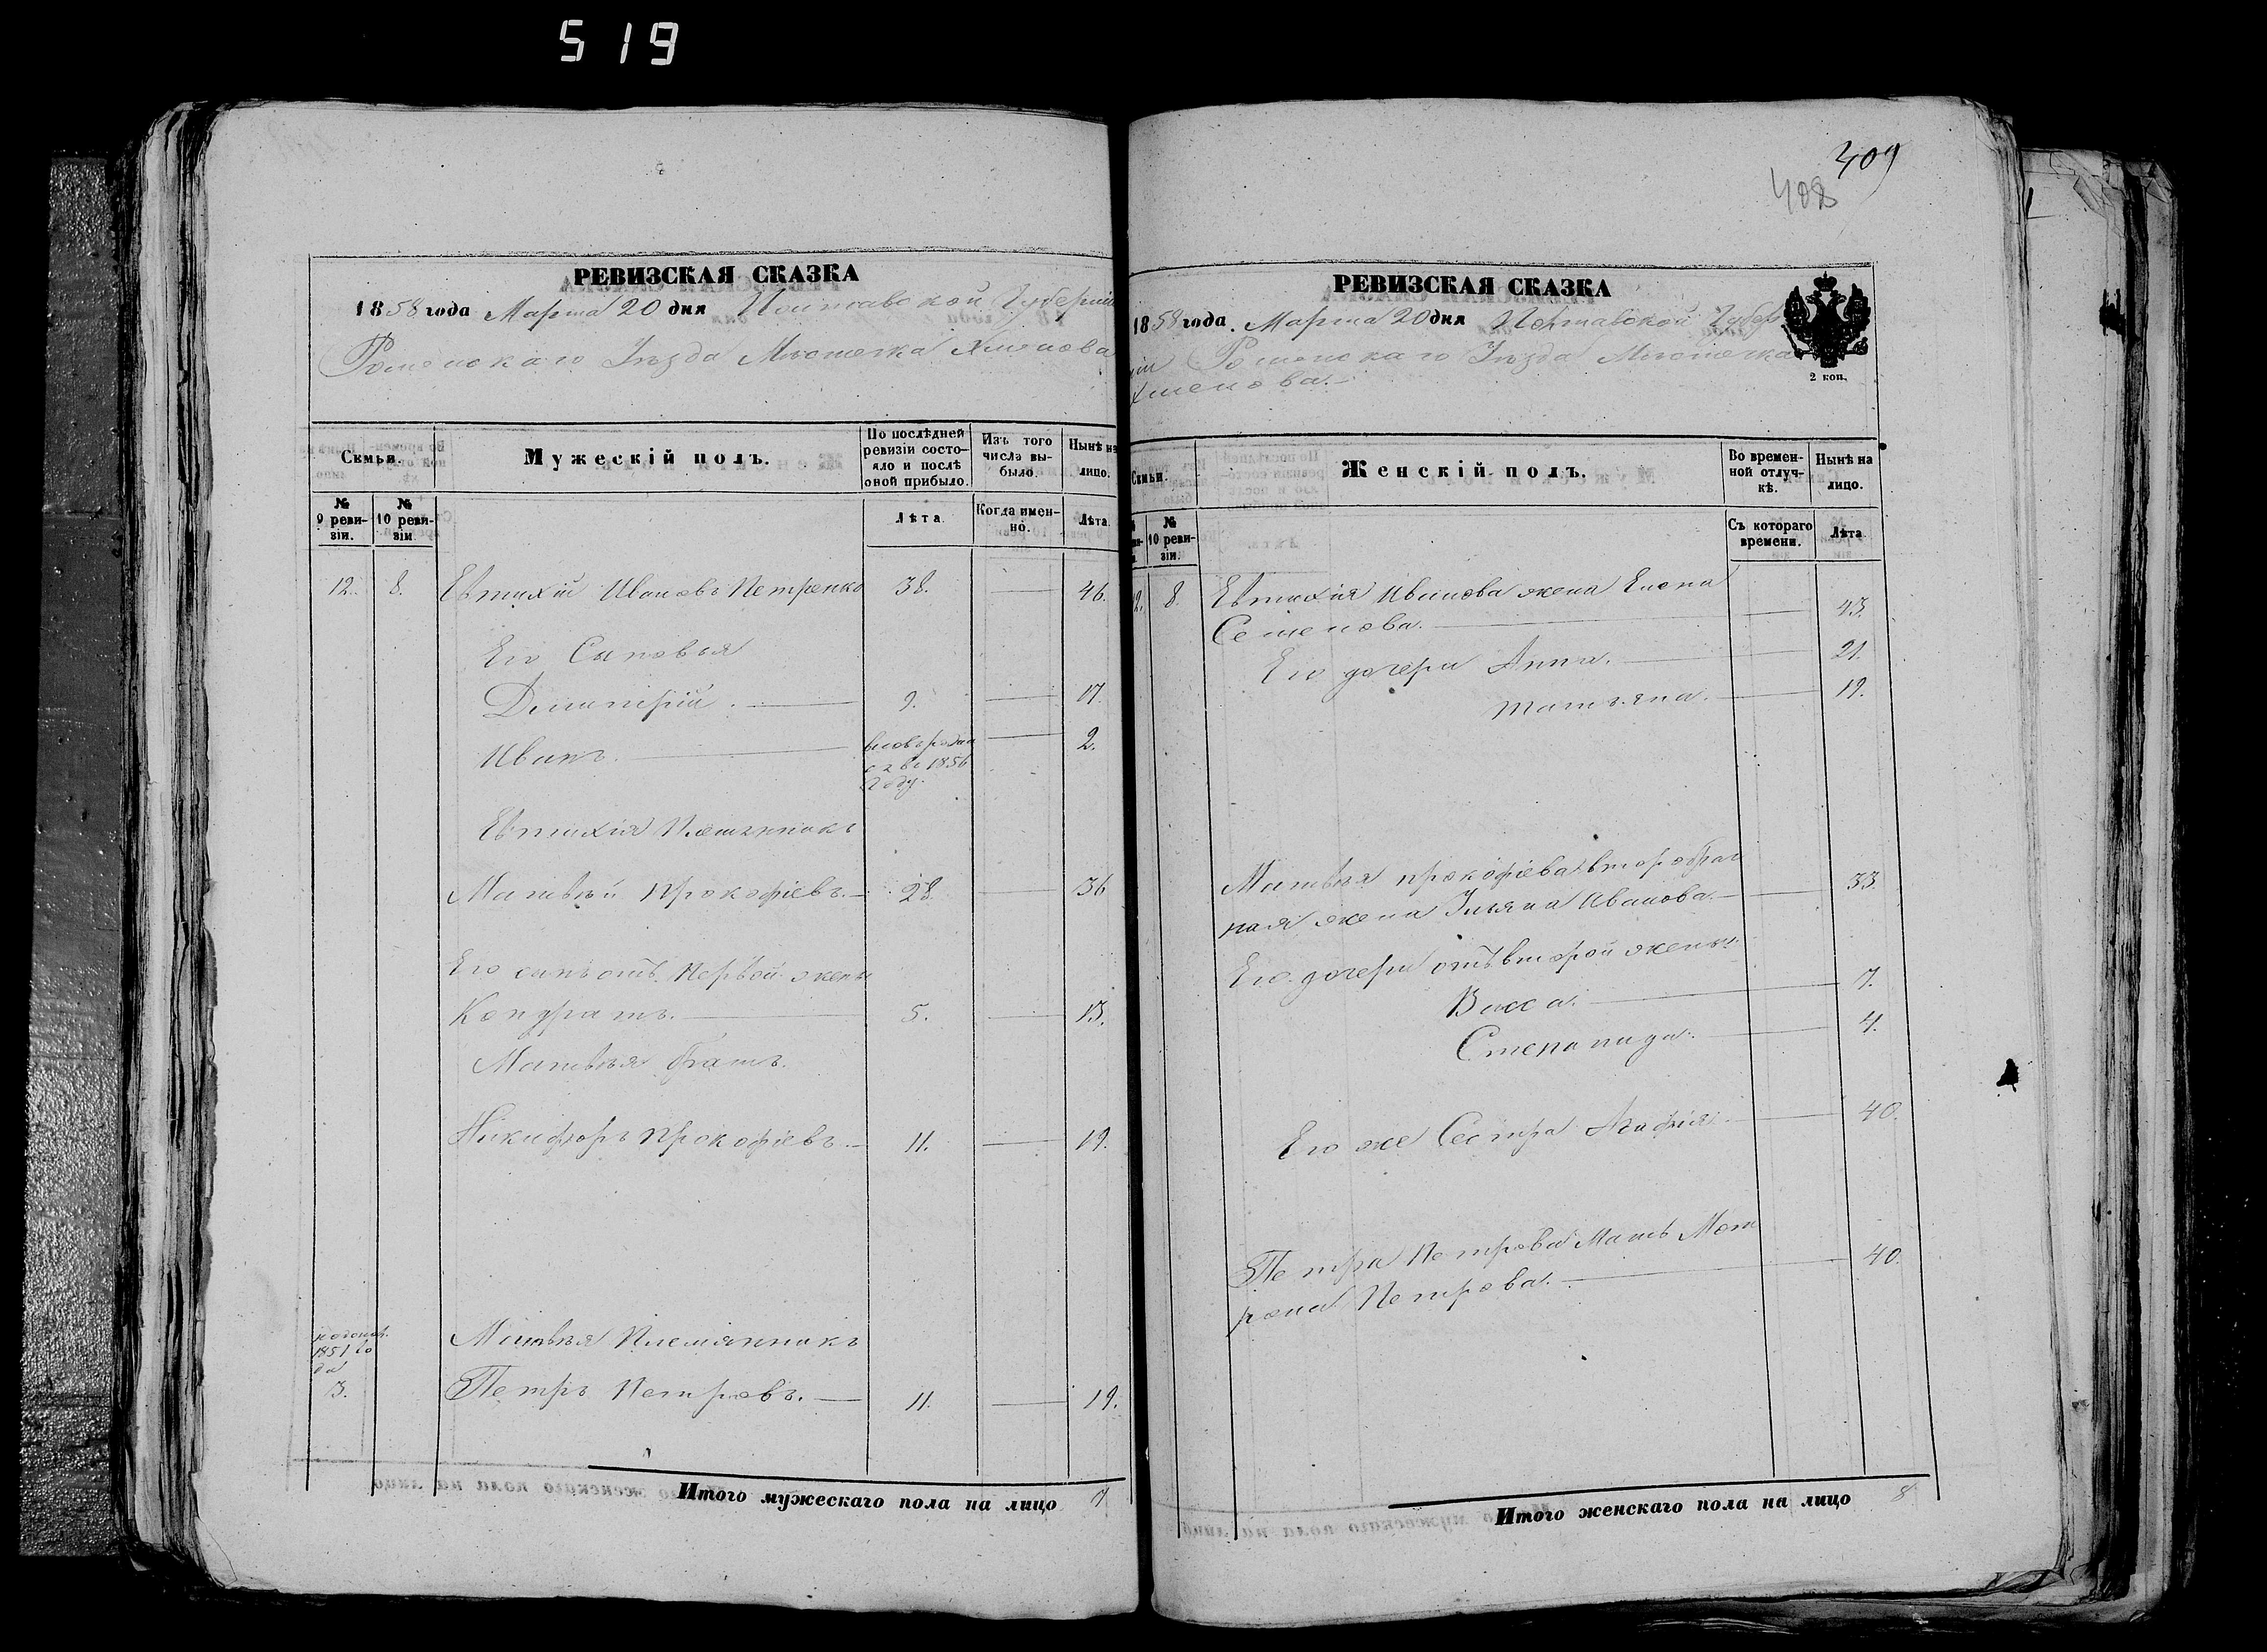 519
РЕВИЗСКАЯ СКАЗКА
1858 года Марта 20 дня Полтавской Губерніи
Роменскаго Уѣзда Мѣстечка Хмелова
Семьи.
Мужескій полъ.
По послѣдней ревизіи состояло и послѣ оной прибыло.
Изъ того числа выбыло.
Нынѣ на лицо.
№ 9 ревизіи.
№ 10 ревизіи
Лѣта
Когда именно.
Лѣта
12. 8. Евтихій Ивановъ Петренко 38. 46.
Его Сыновья
Димитрій. 9. 17.
Иванъ. вновь родил 2.
ся въ 1856
Году.
Евтихія Племянникъ
Матвѣй Прокофіевъ. 28. 36
Его сынъ отъ Первой жены
Кондратъ. 5. 13.
Матвѣя братъ.
Никифоръ Прокофіевъ. 11. 19.
1851 го
да
3.
Матвѣя Племянникъ
Петръ Петровъ. 11. 19.
Итого мужескаго пола на лицо 7
409
408
РЕВИЗСКАЯ СКАЗКА
1858 года. Марта 20 дня Полтавской Губер
ніи Роменскаго Уѣзда Мѣстечка
Хмелова.
2 коп.
Семьи.
Женскій полъ.
Во временной отлучкѣ.
Нынѣ на лицо.
№ 10 ревизіи.
Съ котораго времени.
Лѣта
12. 8. Евтихія Иванова жена Елена
Семенова. 43.
Его дочери Анна. 21.
Татьяна. 19.
Матвѣя Прокофіева второбрач
ная жена Ульяна Иванова. 33.
Его дочери отъ второй жены
Васса. 7.
Степанида. 4.
Его же Сестра Агафія. 40.
Петра Петрова Мать Мот
рона Петрова. 40.
Итого женскаго пола на лицо 8